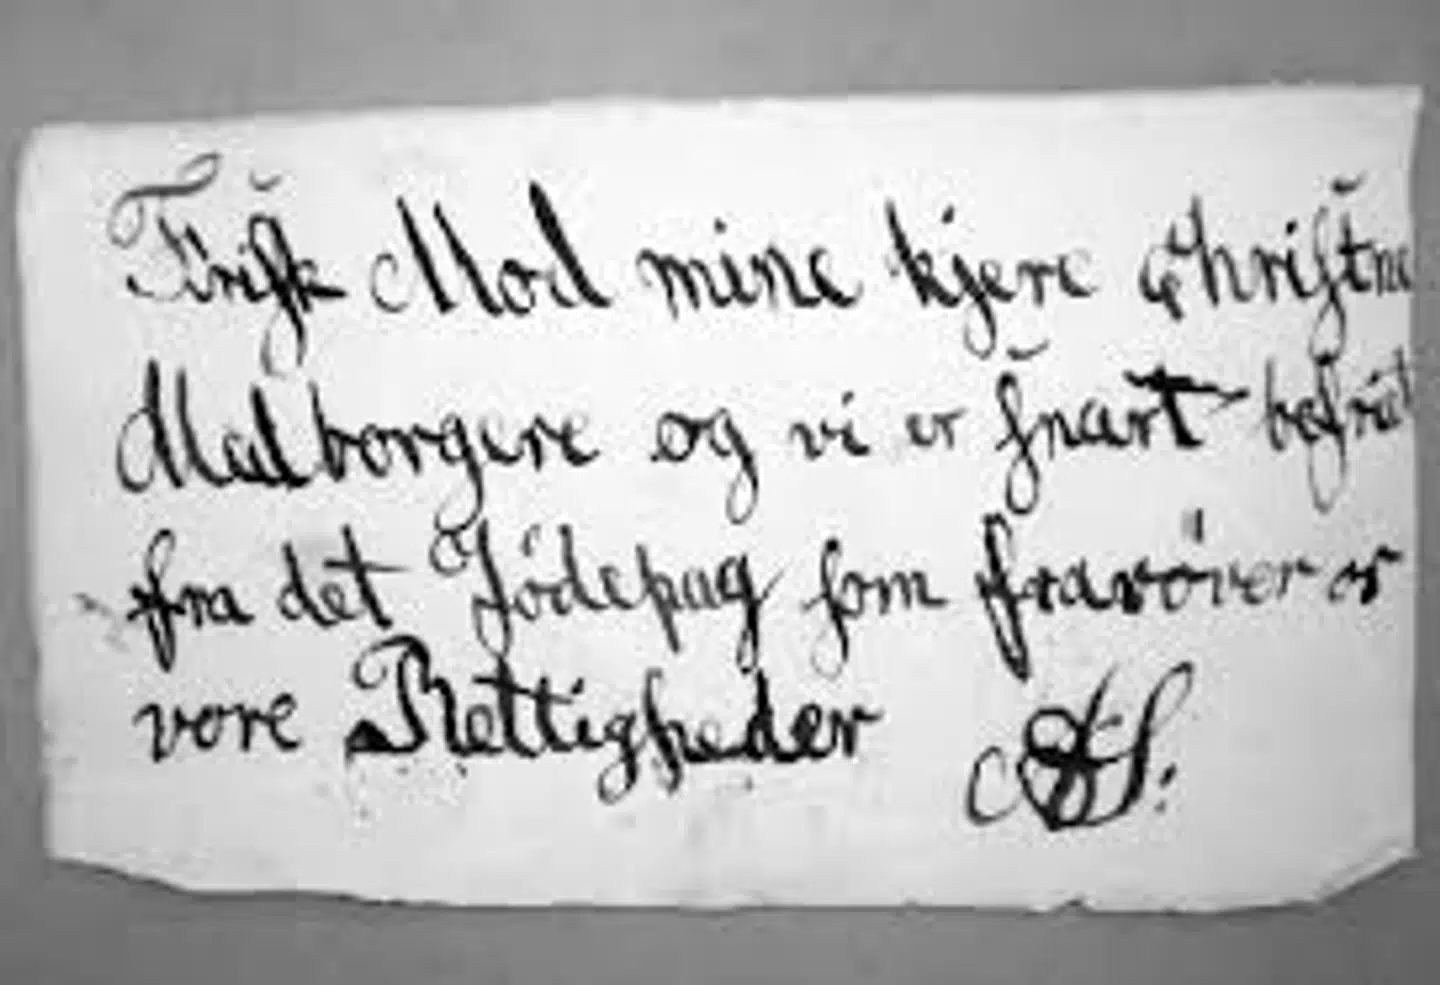 Friſk Mod mine kjere Chriſtne
Medborgere og vi er ſnart befriet
fra det Jödepag ſom fravöver os
vore Rettigheder